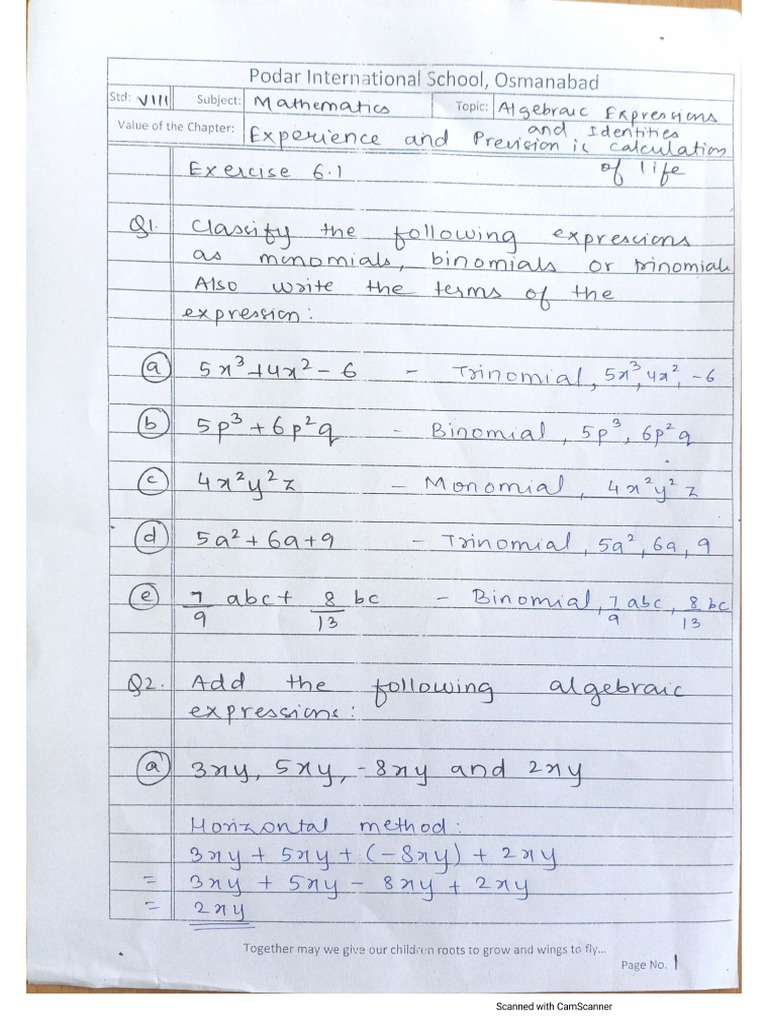 Podar International School, Osmanabad
Std: VIII Subject: Mathematics Topic: Algebraic Expressions and Identities
Value of the Chapter: Experience and Prevision is calculation of life
Exercise 6.1
Q1. Classify the following expressions
as monomials, binomials or trinomials
Also write the terms of the
expression:
(a) 5x³+4x²-6 - Trinomial, 5x³, 4x², -6
(b) 5p³+6p²q - Binomial, 5p³, 6p²q
(c) 4x²y²z - Monomial, 4x²y²z
(d) 5a²+6a+9 - Trinomial, 5a², 6a, 9
(e) 7/9 abc + 8/13 bc - Binomial, 7/9 abc, 8/13 bc
Q2. Add the following algebraic
expressions:
(a) 3xy, 5xy, -8xy and 2xy
Horizontal method:
3xy + 5xy + (-8xy) + 2xy
= 3xy + 5xy - 8xy + 2xy
= 2xy
Together may we give our children roots to grow and wings to fly...
Page No. 1
Scanned with CamScanner